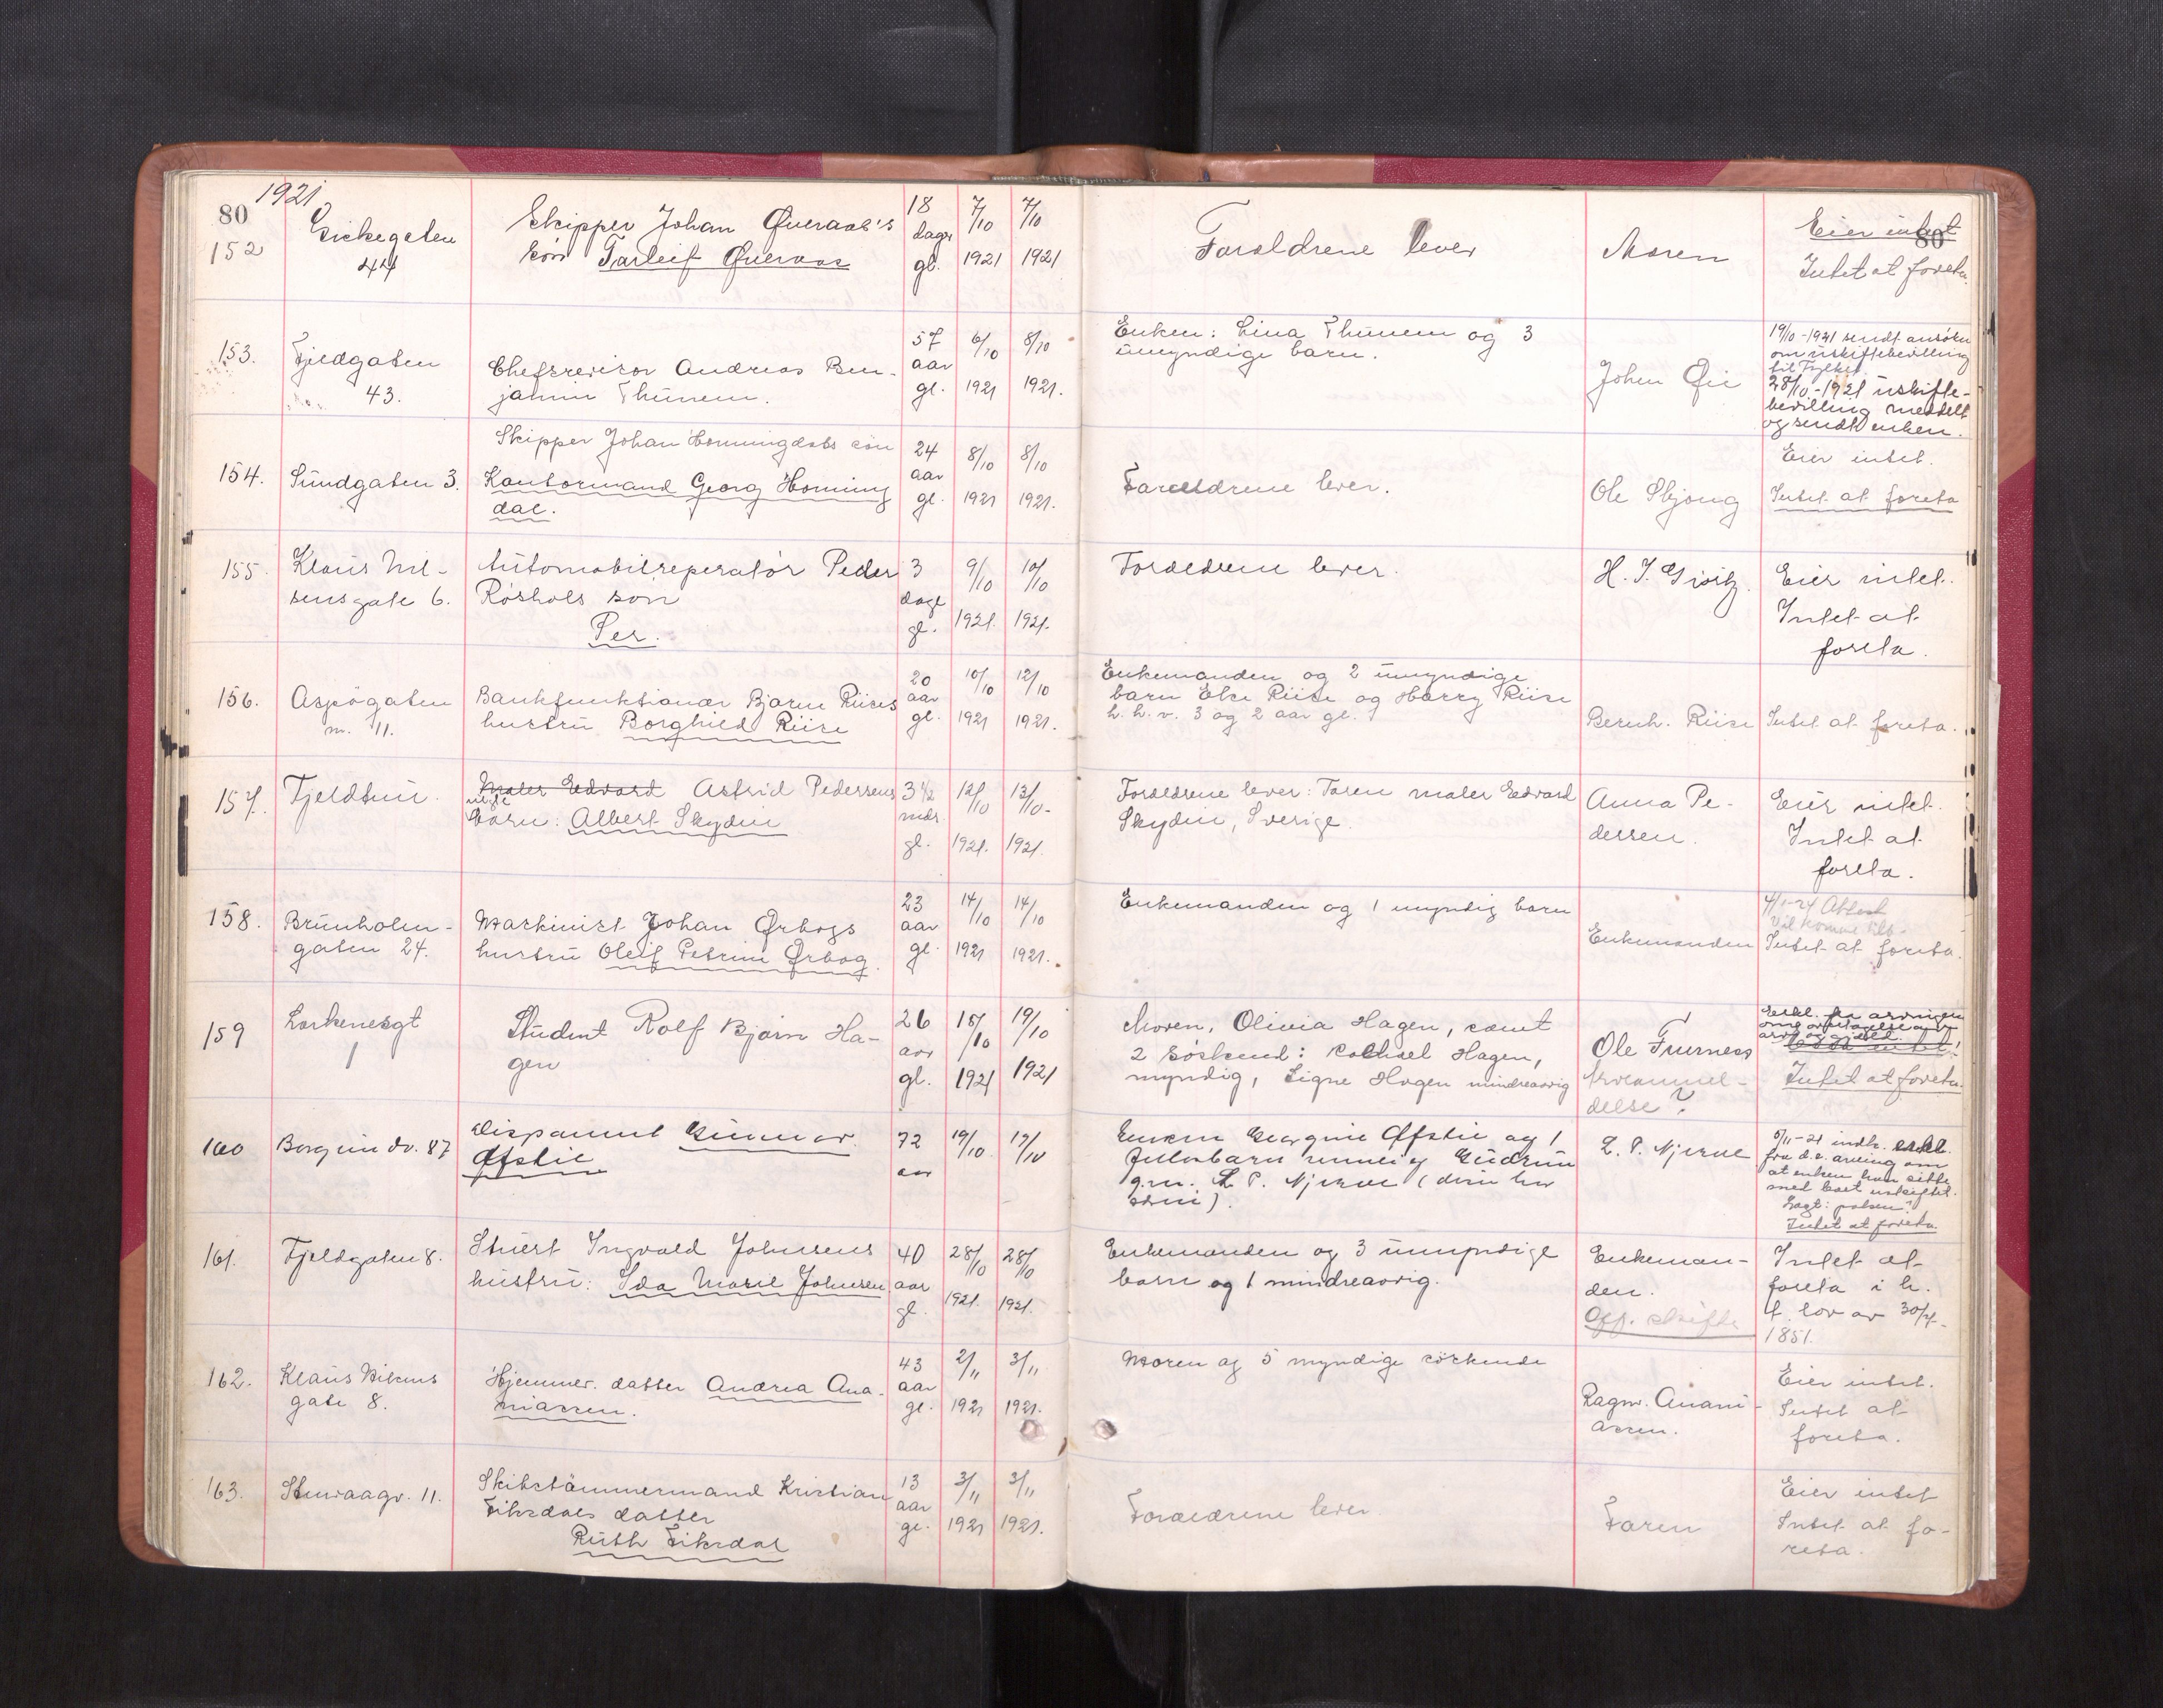 1921
80
152
Kirkegaten
44
Skipper Johan Øveraas's
søn Tarleif Øveraas
18
dager
gl.
7/10
1921
7/10
1921
Foræeldrene lever
Moren
Eier intet
80
Intet at foreta.
153.
Fjeldgaten
43.
Chefsrevisor Andreas Ben-
jamin Thunem.
57
aar
gl.
6/10
1921
8/10
1921.
Enken: Lina Thunem og 3
umyndige barn.
Johan Øie
19/10-1921 sendt ansøkn
om uskiftebevilling
til Fylket.
28/10-1921 uskifte-
bevilling meddelt
og sendt enken.
154.
Sundgaten 3.
Skipper Johan Horningdals søn
Kontormand Georg Horning
dal.
24
aar
gl.
8/10
1921
8/10
1921.
Foræeldrene lever.
Ole Skjong
Eier intet.
Intet at foreta
155.
Klaus Nil-
sens gate 6.
Automobilreperatør Peder
Røshols søn
Per.
3
dage
gl.
9/10
1921.
10/10
1921.
Foræeldrene lever.
H. J. Giørtz.
Eier intet.
Intet at
foreta.
156.
Aspøgaten
nr. 11.
Bankfunktionær Bjarne Riises
hustru Borghild Riise
20
aar
gl.
10/10
1921
12/10
1921.
Enkemanden og 2 umyndige
barn Else Riise og Harry Riise
h. h. v. 3 og 2 aar gl.
Bernh. Riise
Intet at foreta.
157.
Fjeldtun.
Maler Edvard Astrid Pedersens
uegte
barn: Albert Skydin
3 1/2
mdr.
gl.
12/10
1921.
13/10-
1921.
Foræeldrene lever: Faren maler Edvard
Skydin, Sverige.
Anna Pe-
dersen.
Eier intet.
Intet at
foreta.
158.
Brunholm-
gaten 24.
Maskinist Johan Ørbogs
hustru Oleif Petrine Ørbog.
23
aar
gl.
14/10
1921
14/10
1921.
Enkemanden og 1 umyndig barn
Enkemanden
4/1-24 Attest
Vil komme tilb-
Intet at foreta.
159
Lorkenesgt
1
Student Rolf Bjørn Ha-
gen
26
aar
gl.
18/10
1921
19/10
1921
Moren, Olivia Hagen, samt
2 søskend: Hagen,
myndig, Signe Hagen mindreaarig
Ole Furness
delse?
Erkl. fra arvingen
om overtagelse av
arv og gjæld.
Intet at foreta.
160
Borgundv. 87
Disponent Gunnar
Ofstie
72
aar
19/10
19/10
Enken Georgine Ofstie og 1
Gudrun
g.m. L. P. Njerve
L. P. Njerve
5/11-21 indk. erkl.
fra d.e. arving om
at enken kan sitte
med boet uskiftet.
Intet at foreta.
161.
Fjeldgaten 8.
Stuert Ingvald Johnsens
hustru: Ida Marie Johnsen.
40
aar
gl.
28/10
1921.
28/10
1921.
Enkemanden og 3 umyndige
barn og 1 mindreaarig.
Enkeman-
den.
Off. skifte
Intet at
foreta i h.
t. lov av 30/7-
1851.
162.
Klaus Nilsens
gate 8.
Hjemmev. datter Andrea Ana-
niassen.
43
aar
gl.
2/11
1921
3/11
1921.
Moren og 5 myndige søskende
Ragnv. Anani-
assen.
Eier intet.
Intet at
foreta.
163.
Storvaagv. 11.
Skibstømmermand Kristian
Fiksdals datter
Ruth Fiksdal
13
aar
gl.
3/11
1921
3/11
1921.
Foræeldrene lever.
Faren
Eier intet
Intet at fo-
reta.